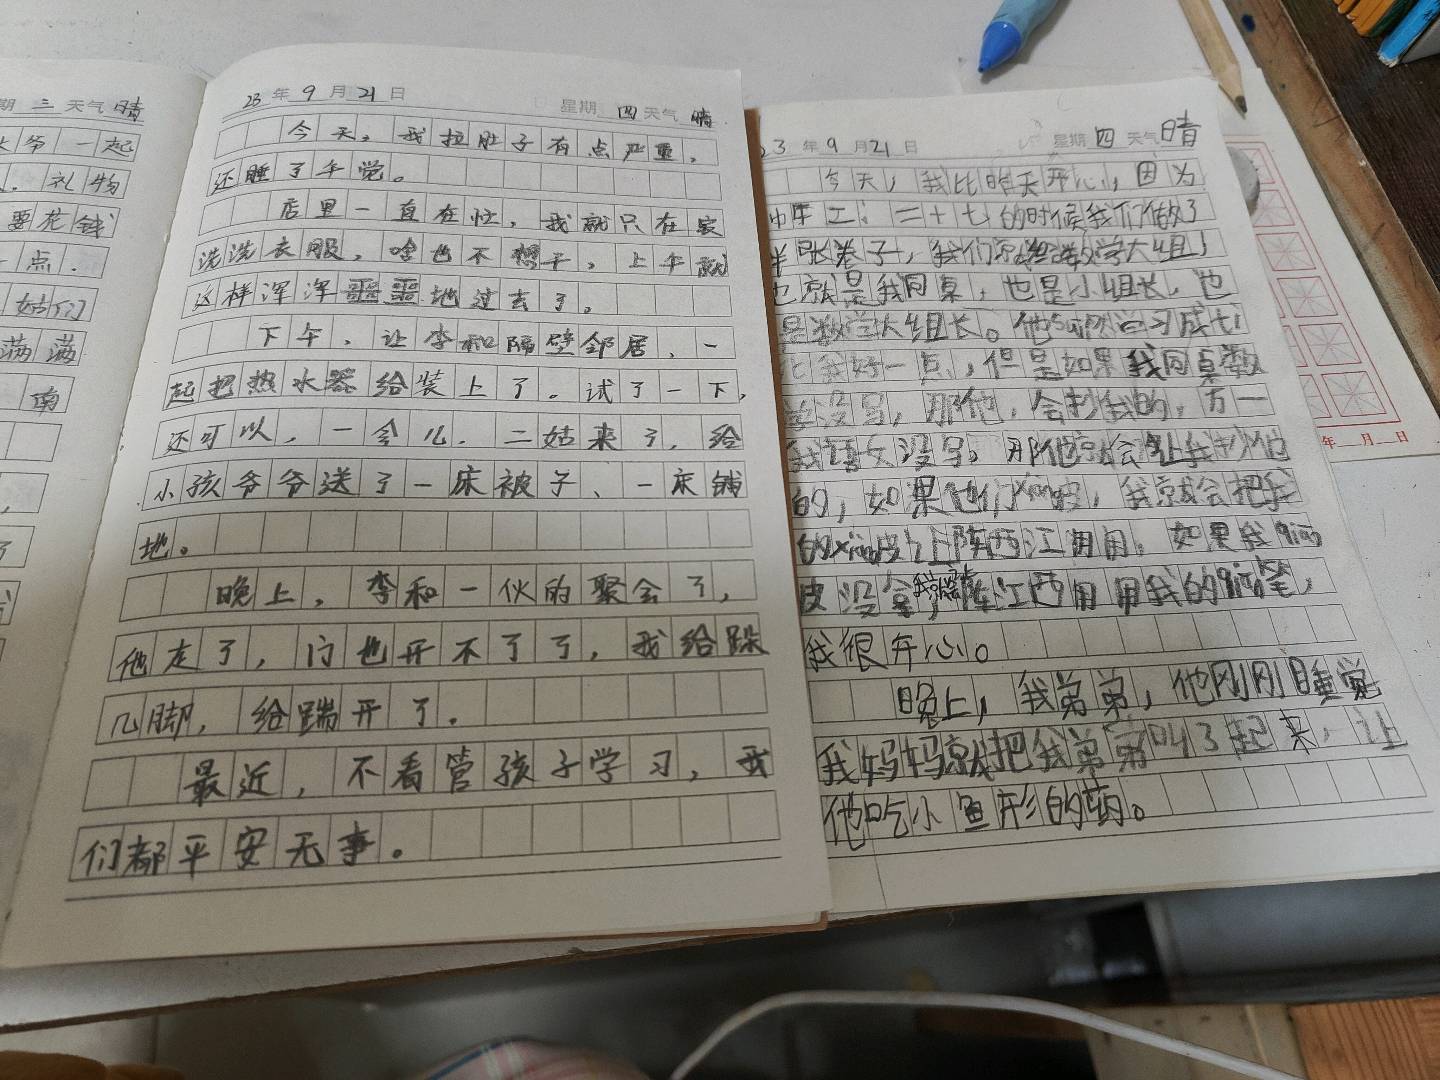 期 三 天气 晴
爷 一 起
礼 物
要 花 钱
一 点 .
姑 们
满 满
南
了
23 年 9 月 21 日 星期 四 天气 晴
今天，我拉肚子有点严重，
还睡了午觉。
店里一直在忙，我就只在家
洗洗衣服，啥也不想干，上午就
这样浑浑噩噩地过去了。
下午，让李和隔壁邻居，一
起把热水器给装上了。试了一下，
还可以，一会儿，二姑来了，给
小孩爷爷送了一床被子、一床铺
地。
晚上，李和一伙的聚会了，
他走了，门也开不了了，我给跺
几脚，给踹开了。
最近，不看管孩子学习，我
们都平安无事。
23 年 9 月 21 日 星期 四 天气 晴
今天，我比昨天开心，因为
中午二：二十七的时候我们做了
半张卷子，我们数学大组
也就是我同桌，也是小组长，也
是数学大组长。他suī然学习成
比我好一点，但是如果我同桌数
学没写，那他，会抄我的，万一
我语文没写。那他就会让我抄他
的，如果他们xiàng皮，我就会把我
的xiàng皮让陈西江用用，如果我qiān
皮没拿，陈江西用用我的qiān笔，
我很开心。
晚上，我弟弟，他刚刚睡觉
我妈妈就把我弟弟叫了起来，让
他吃小鱼形的药。
年 月 日